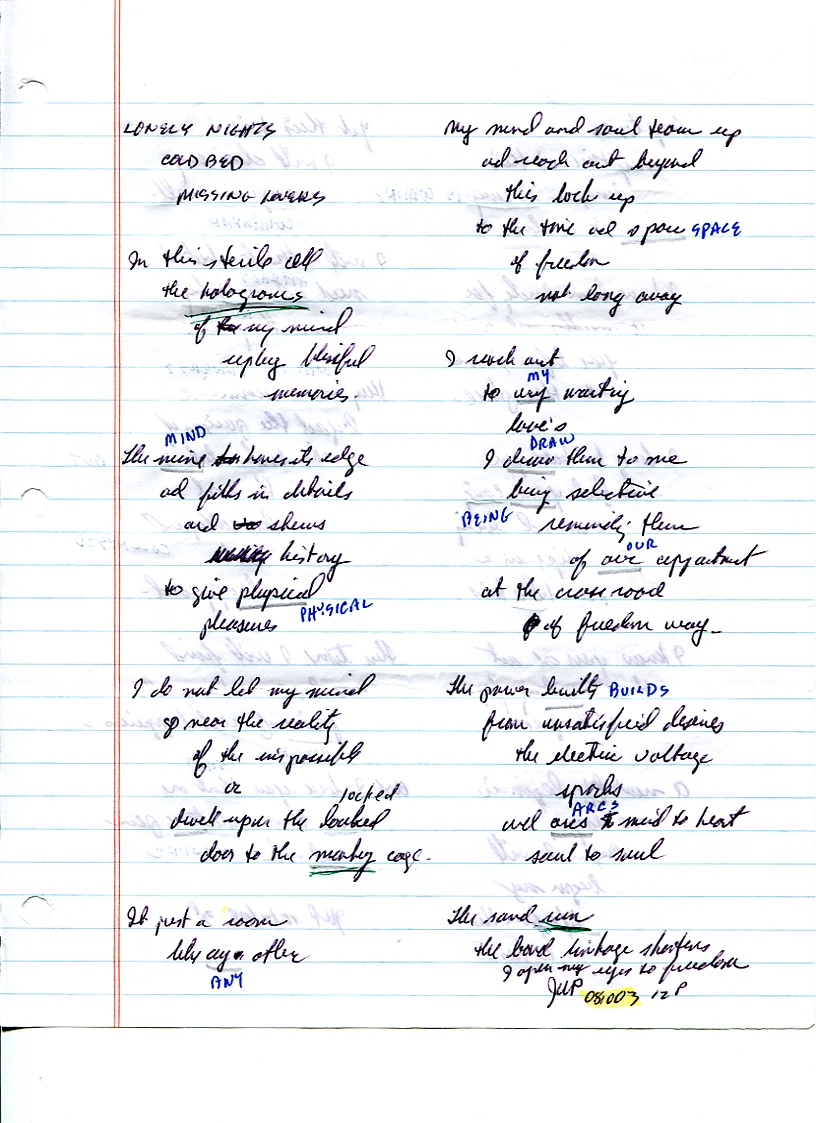 LONELY NIGHTS
COLD BED
MISSING LOVERS
In this sterile cell
the holograms
of my mind
replay blissful
memories.
MIND
The mind hones its edge
ad fills in details
and skews
history
to give physical
PHYSICAL
pleasures
I do not let my mind
go near the reality
of the impossible
or
locked
dwell upon the locked
door to the monkey cage.
It just a room
like any other
ANY
My mind and soul team up
ad reach out beyond
this lock up
to the time ad space SPACE
of freedom
not long away
I reach out
MY
to my waiting
love's
DRAW
I draw them to me
being selective
BEING
reminding them
OUR
of our appartment
at the cross road
of freedom way.
The power builts BUILDS
from unsatisfied desires
the electric voltage
sparks
ARCS
and arcs mind to heart
soul to soul
The sand run
the bond linkage shortens
I open my eyes to freedom
JWP 081003 12P